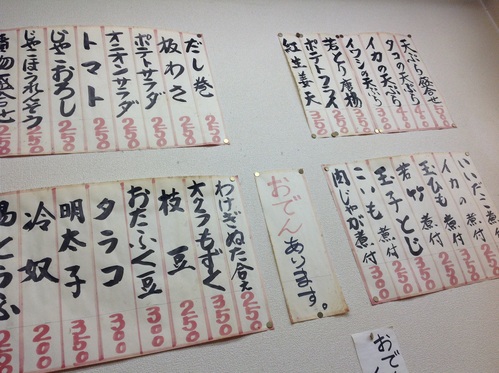 だし巻 250
板わさ 250
ポテトサラダ 250
オニオンサラダ 250
トマト 250
じゃこおろし 250
じゃこほうれん草
天ぷら盛合せ
タコの天ぷら
イカの天ぷら
イワシの天ぷら
若とり唐揚
ポテトフライ
紅生姜天 300
わけぎぬた合え 250
オクラもずく 250
枝豆
おたふく豆 300
タラコ 300
明太子 350
冷奴 200
いいだこ煮付
イカの煮付
玉ひも煮付
若竹煮付
玉子とじ
こいも煮付
肉じゃが煮付 300
おでんあります。
おでん